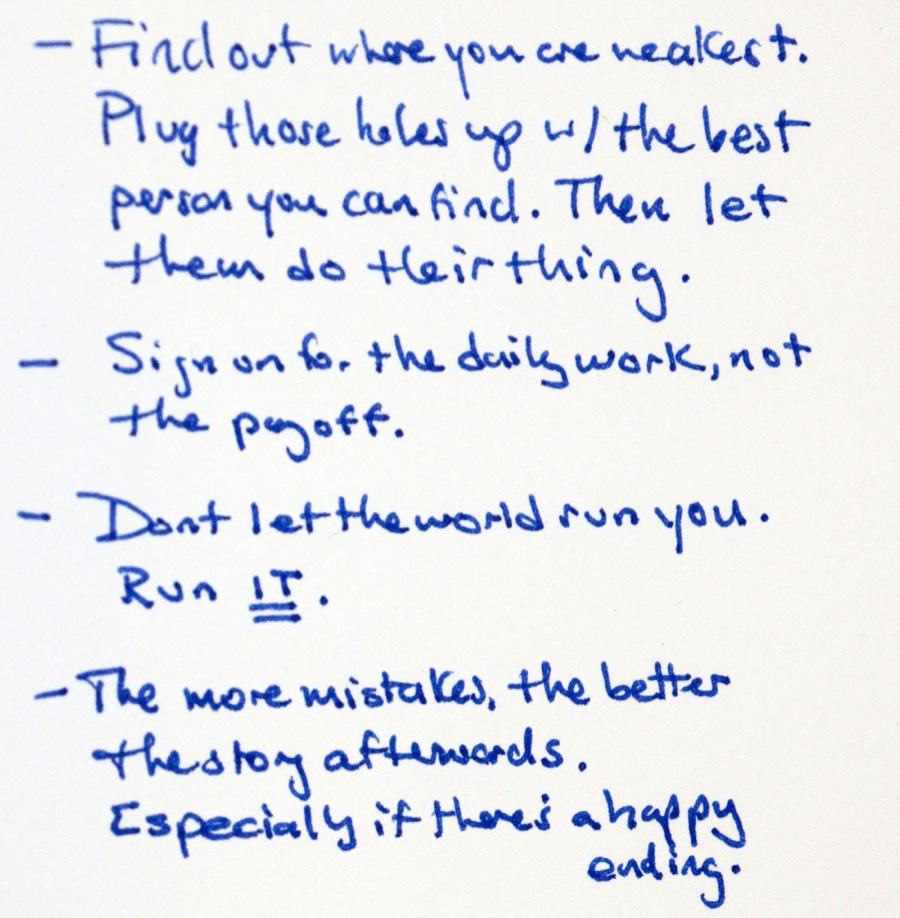 - Find out where you are weakest.
Plug those holes up w/ the best
person you can find. Then let
them do their thing.
- Sign on for the daily work, not
the payoff.
- Dont let the world run you.
Run IT.
- The more mistakes, the better
the story afterwards.
Especially if there's a happy
ending.